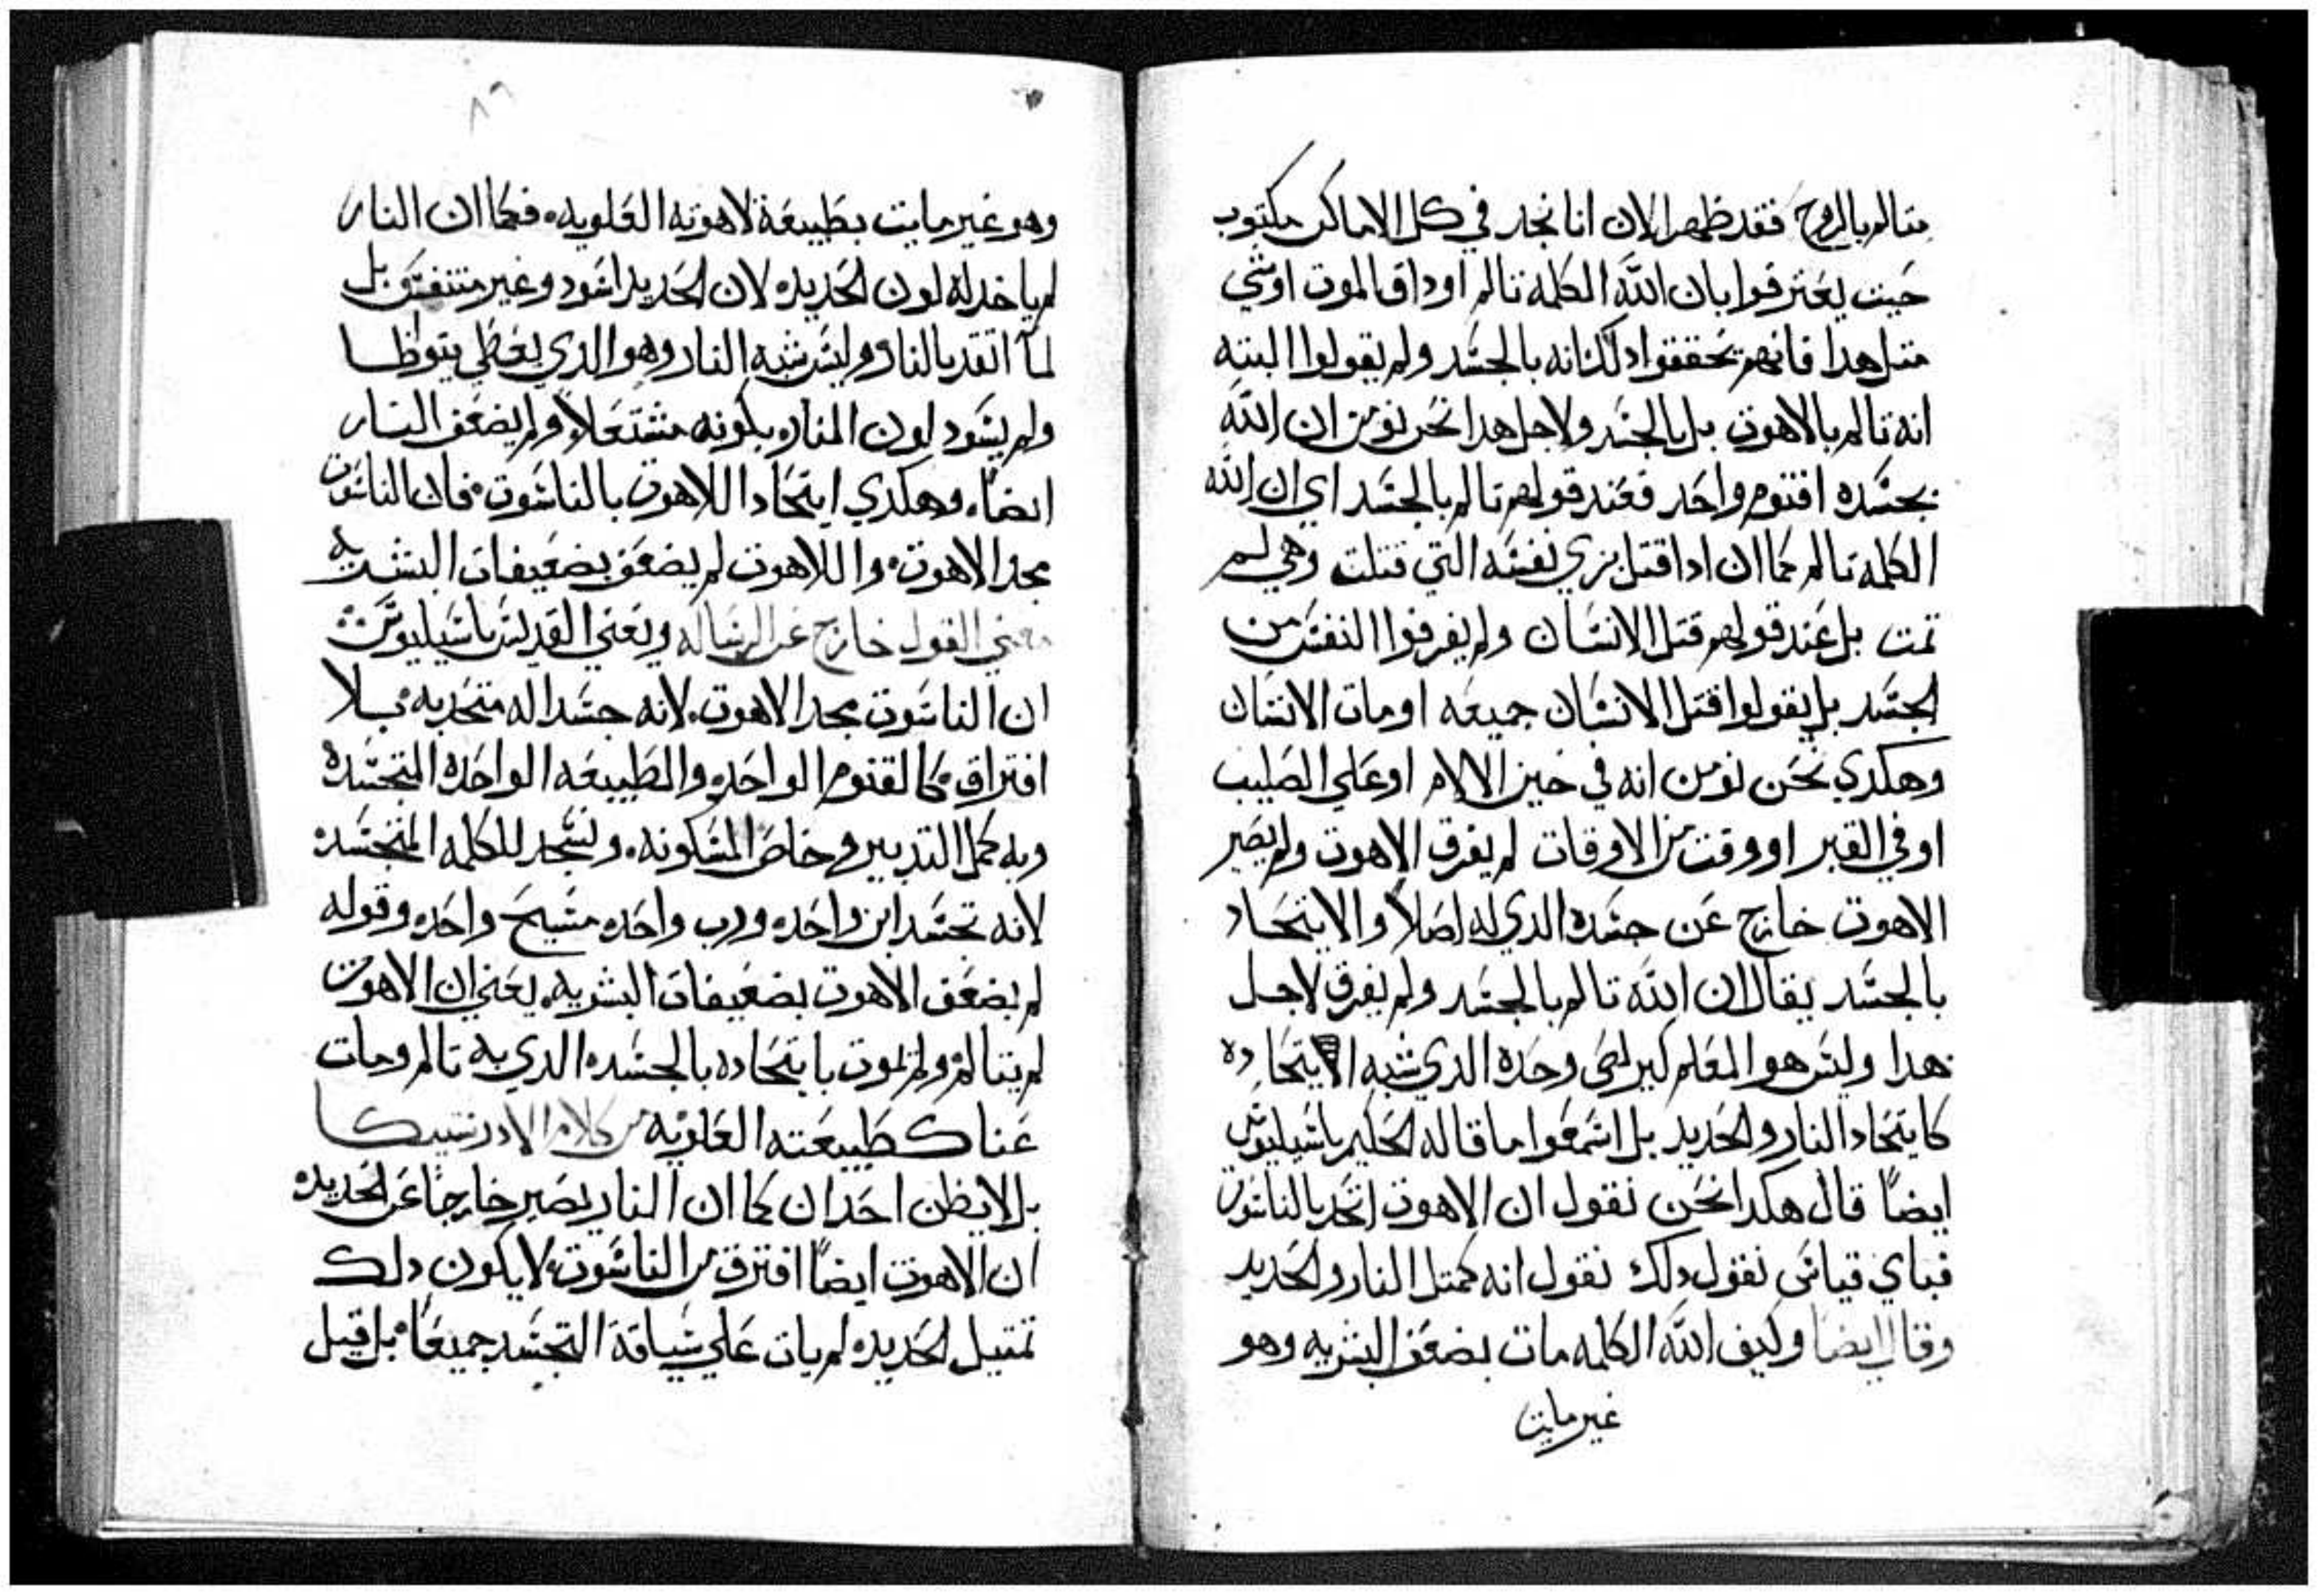 متالم بالروح فقد ظهر الان انا نجد في كل الاماكن مكتوب
حيت يعترفوا بان الله الكلمة تالم او داق الموت او شي
متل هدا فانهم يحققوا دلك انه بالجسد ولم يقولوا البته
انه تالم بالاهوت بل بالجسد ولاجل هدا نحن نومن ان الله
بجسده اقنوم واحد فعند قولهم تالم بالجسد اي ان الله
الكلمة تالم كما ان ادا قتل نري نفسه التي قتلت وهي لم
تمت بل عند قولهم قتل الانسان ولم يفرقوا النفس من
الجسد بل يقولوا قتل الانسان جميعه او مات الانسان
وهكدي نحن نومن انه في حين الالام او علي الصليب
او في القبر او وقت من الاوقات لم يفرق الاهوت ولم يصير
الاهوت خارج عن جسده الدي له اصلا والايتحاد
بالجسد يقال ان الله تالم بالجسد ولم يفرق لاجل
هدا وليس هو المعلم كيرلص وحده الدي شبه الايتحاده
كايتحاد النار والحديد بل اسمعوا ما قاله الحكيم باسيليوس
ايضا قال هكدا نحن نقول ان الاهوت اتحد بالناسوت
فباي قياس نقول دلك نقول انه كمتل النار والحديد
وقال ايضا وكيف الله الكلمه مات بضعف البشريه وهو
غير مايت
٨٩
وهو غير مايت بطبيعة لاهوته العلويه. فكما ان النار
لم ياخد له لون الحديد. لان الحديد اسود وغير متنفس بل
لما اتقد بالنار وليس شبه النار وهو الدي يعطي
ولم يسود لون النار. بكونه مشتعلا. ولم يضعف النار
ايضا. وهكدي ايتحاد اللاهوت بالناسوت. فان الناسوت
مجد الاهوت. واللاهوت لم يضعف بضعيفات البشريه
معني القول خارج عن الرساله ويعني القديس باسيليوس
ان الناسوت مجد الاهوت. لانه جسد اله متحد به. بلا
افتراق. كالقنوم الواحد. والطبيعه الواحده المتجسده
وبه كمل التدبير. وخاص المسكونه. ونسجد للكلمه المتجسد.
لانه تجسد ابن واحد. ورب واحد. مسيح واحد. وقوله
لم يضعف الاهوت بضعيفات البشريه. يعني ان الاهوت
لم يتالم. ولم يموت بايتحاده بالجسد. الدي به تالم ومات
عنا كطبيعته العلويه من كلام الادرنسيكا
بل لا يظن احد ان كما ان النار يصير خارجا عن الحديد.
ان الاهوت ايضا افترق من الناسوت. لا يكون دلك
تمتيل الحديد. لم يات علي سياقة التجسد جميعا. بل قيل